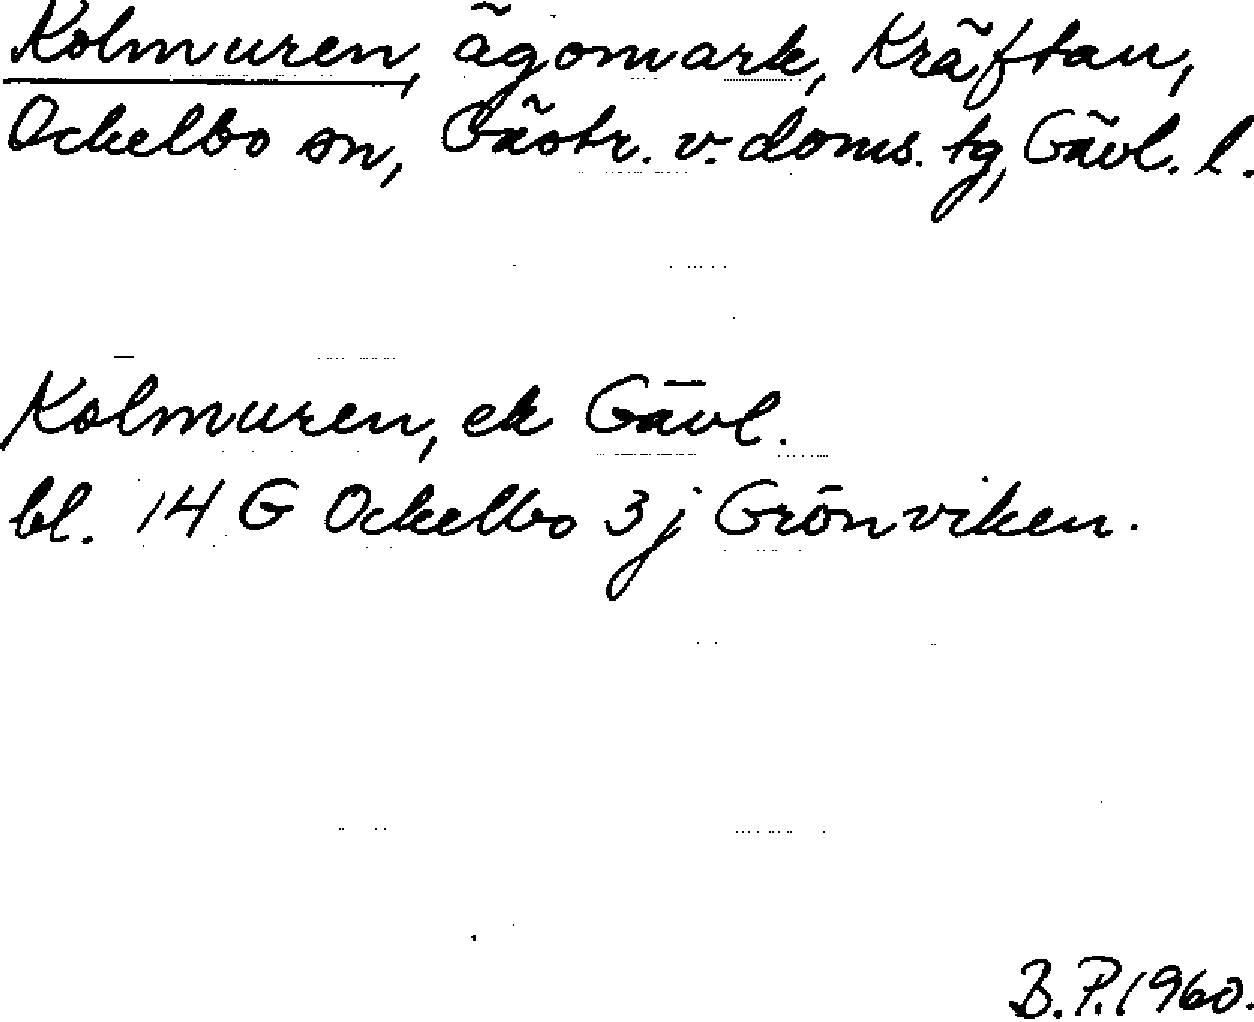 Kolmuren, ägomark, Kräftan,
Ockelbo sn, Gästr. v. doms. tg, Gävl. l.
Kolmuren, ek Gävl.
bl. 14 G Ockelbo 3j Grönviken.
B.P. 1960.